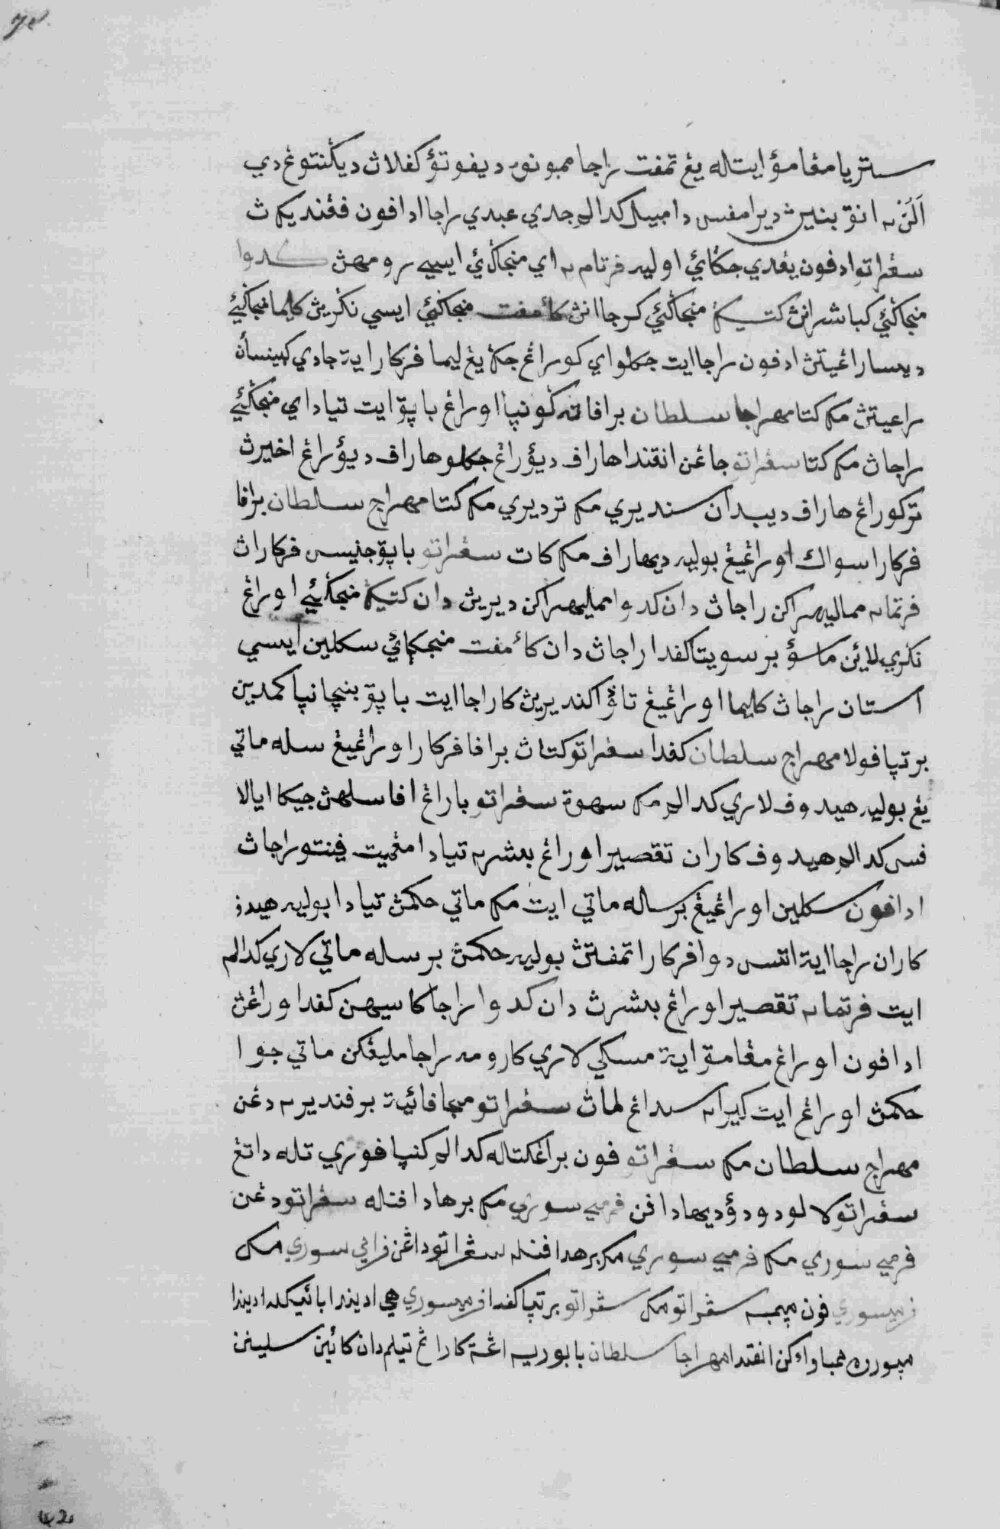 ستريا مڠامؤ ايتله يڠ تمفت راجا ممبونوه ديفوتؤ كفلاڽ ديڬنتوڠ دي
الن٢ انق بنين ديرامفس دامبيل كدالم جدي عبدي راجا ادافون ففنديكن
سڠراتو ادفون يڠدي جڬائي اوليه فرتام٢ اي منجاڬئي ايسي رومهڽ كدوا
منجاڬئي كباشرانڽ كتيڬ منجاڬئي كرجاانڽ كأمفت منجاڬئي ايسي نڬريڽ كليما منجاڬئي
دعيتڽ ادفون راجا ايت جكلو اي كورڠ جڬ يڠ ليما فركارا ايت جادي كبينسأن
رعيتڽ مك كتا مهراجا سلطان برافاته ڬونڽا اورڠ باڽق ايت تياد اي منجڬئي
راجاڽ مك كتا سڠراتو جاڠن انقندا هارف ديؤرڠ جكلو هارف ديؤرڠ اخيرڽ
تركورڠ هارف ديبدان سنديري مك ترديري مك كتا مهراج سلطان برافا
فركارا سواك اورڠيڠ بوليه ديهارف مك كات سڠراتو باڽق جنيس فركاراڽ
فرتمان مماليهراكن راجاڽ دان كدوا مميليهراكن ديريڽ دان كتيڬ منجڬئي اورڠ
نڬري لاين ماسؤ برسويتا كفدا راجاڽ دان كأمفت منجڬائي سكلين ايسي
استان راجاڽ كليما اورڠيڠ تاقوكن ديريڽ كاراجا ايت باڽق بنچانڽا كمدين
برتڽا فولا مهراج سلطان كفدا سڠراتو كتاڽ برافا فركارا اورڠيڠ سله ماتي
يڠ بوليه هيدوف لاري كدالم مك سهوة سڠراتو بارڠ افا سلهڽ جيكا ايالا
فس كدالم هيدوف كاران تقصير اورڠ بعشر٢ تياد امڠميت فينتو راجاڽ
ادافون سكلين اورڠيڠ برساله ماتي ايت مك ماتي حكمڽ تياد ابوليه هيدف
كاران راجا ايت اتس دوا فركارا تمفتڽ بوليه حكمڽ برساله ماتي لاري كدالم
ايت فرتمان تقصير اورڠ بعشرڽ دان كدوا راجا كاسيهن كفدا اورڠڽ
ادافون اورڠ مڠامق ايت مسكي لاري كارومه راجا مليڠكن ماتي جوا
حكمڽ اورڠ ايت كيران سداڠ لماڽ سڠراتو مڽافائيت برفنديرن دڠن
مهراج سلطان مك سڠراتو فون براڠكتله كدالم كنڽا فوتري تله داتڠ
سڠراتو لالو دودؤ ديهادافن فرميسوري مك برهادافنله سڠراتو دڠن
فرميسوري مك فرميسوري مك برهدافنله سڠراتو داڠن فرميسوري مك
فرميسوري فون مڽمبه سڠراتو مك سڠراتو برتڽا كفدا فرميسوري هي اديندا بائيكله اديندا
مڽوروه ممباواكن انقندا مهراجا سلطان بابوريه اڠة كارڠ تيلم دان كائين سلينن